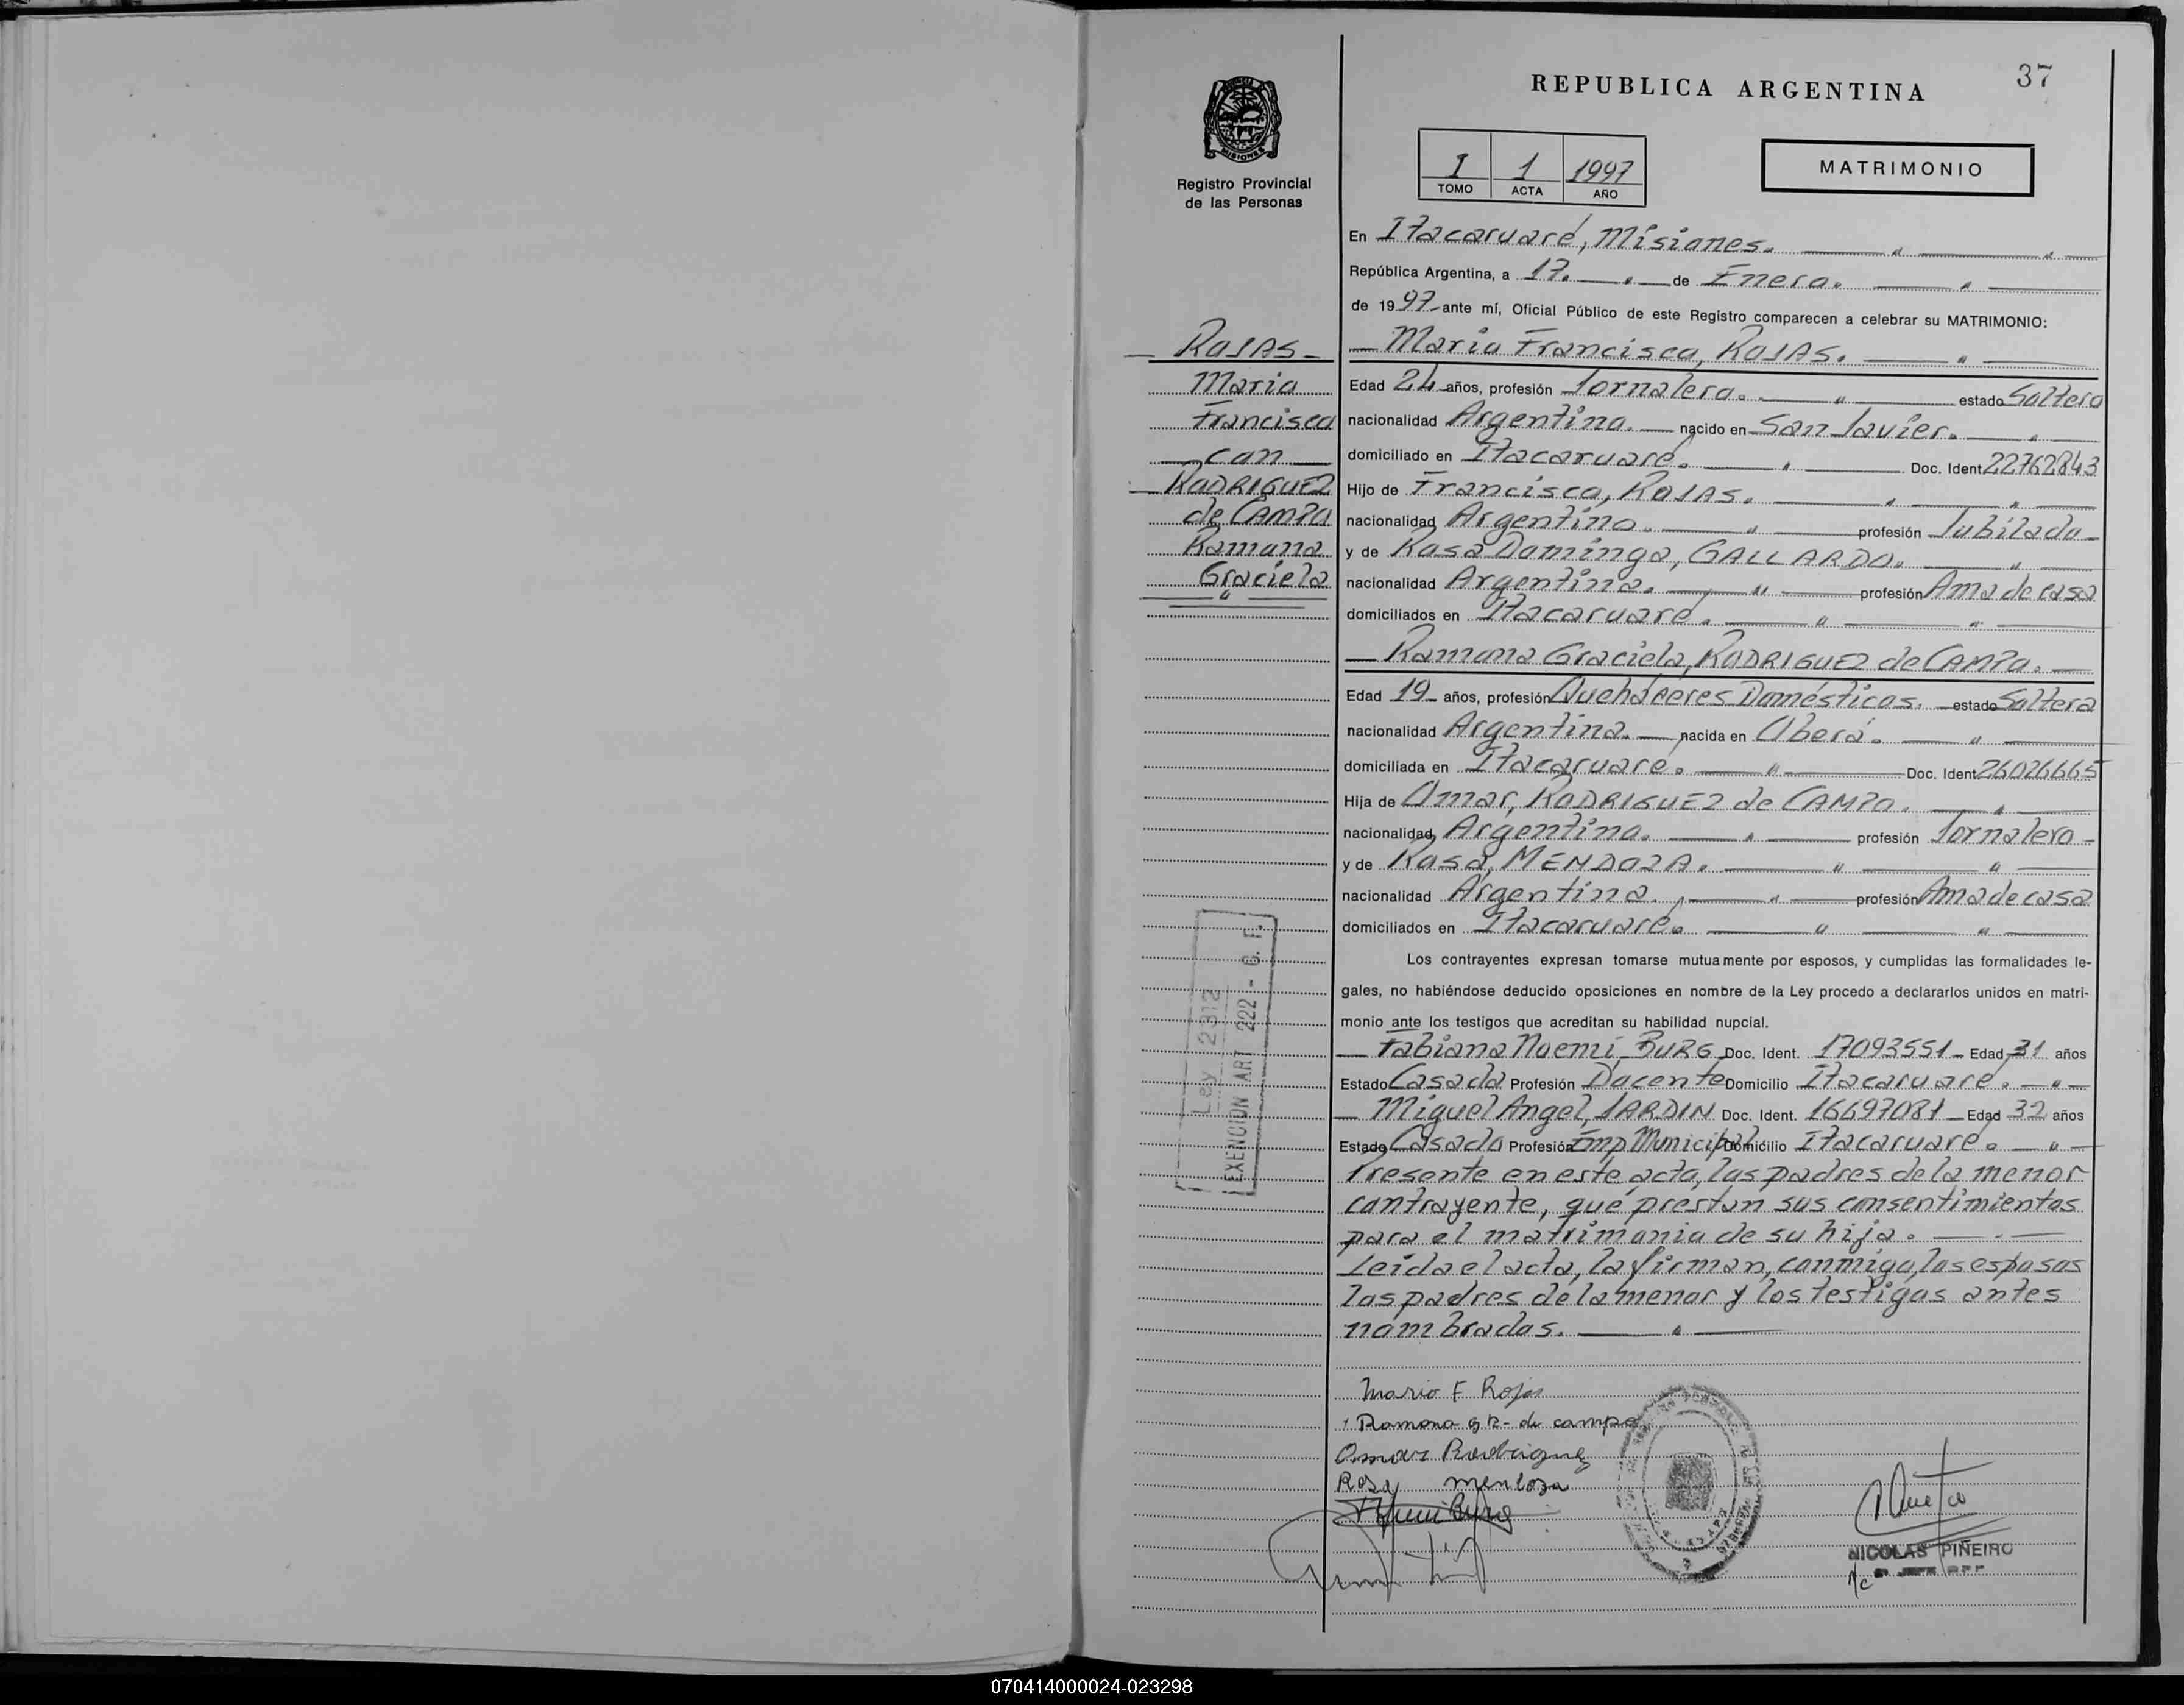 37
REPUBLICA ARGENTINA
MISIONES
Registro Provincial
de las Personas
I 1 1997
TOMO ACTA AÑO
MATRIMONIO
En Itacaruaré, Misiones.
República Argentina, a 17. de Enero.
de 1997 ante mí, Oficial Público de este Registro comparecen a celebrar su MATRIMONIO:
ROJAS
Mario
Francisco
con
RODRIGUEZ
de CAMPO
Ramona
Graciela
Mario Francisco, ROJAS.
Edad 24 años, profesión Jornalero. estado Soltero
nacionalidad Argentina. nacido en San Javier.
domiciliado en Itacaruaré. Doc. Ident. 22762843
Hijo de Francisco, ROJAS.
nacionalidad Argentina. profesión Jubilado
y de Rosa Dominga, GALLARDO.
nacionalidad Argentina. profesión Ama de casa
domiciliados en Itacaruaré.
Ramona Graciela, RODRIGUEZ de CAMPO.
Edad 19 años, profesión Quehaceres Domésticos. estado Soltera
nacionalidad Argentina. nacida en Oberá.
domiciliada en Itacaruaré. Doc. Ident. 26026665
Hija de Omar, RODRIGUEZ de CAMPO.
nacionalidad Argentina. profesión Jornalero
y de Rosa, MENDOZA.
nacionalidad Argentina. profesión Ama de casa
domiciliados en Itacaruaré.
Los contrayentes expresan tomarse mutuamente por esposos, y cumplidas las formalidades le-
gales, no habiéndose deducido oposiciones en nombre de la Ley procedo a declararlos unidos en matri-
monio ante los testigos que acreditan su habilidad nupcial.
Fabiana Noemí BURG Doc. Ident. 17093551 Edad 31 años
Estado Casada Profesión Docente Domicilio Itacaruaré.
Miguel Angel, JARDIN Doc. Ident. 16697081 Edad 32 años
Estado Casado Profesión Emp. Municipal Domicilio Itacaruaré.
Presente en este acto, los padres de la menor
contrayente, que prestan sus consentimientos
para el matrimonio de su hija.
Leída el acta, la firman, conmigo, los esposos
los padres de la menor y los testigos antes
nombrados.
Ley 2312
EXENCION ART 222 - C. F.
Mario F. Rojas
Ramona G R- de campo
Omar Rodriguez
Rosa Mendoza
NICOLAS PIÑEIRO
070414000024-023298